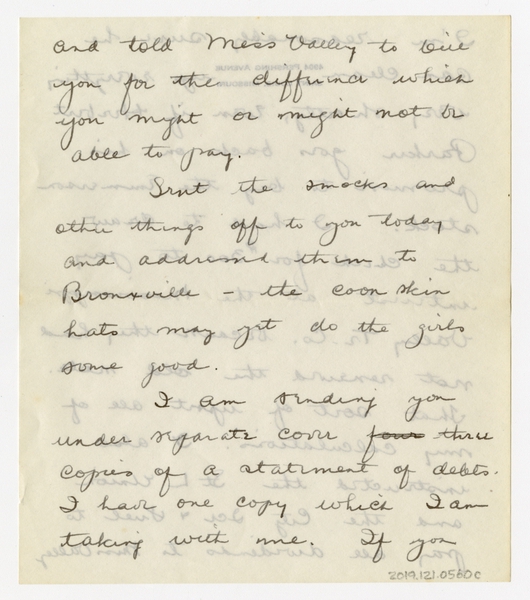 and told Miss Valley to bill
you for the difference which
you might or might not be
able to pay.
Sent the smocks and
other things off to you today
and addressed them to
Bronxville - the coon skin
hats may yet do the girls
some good.
I am sending you
under separate cover four three
copies of a statement of debts.
I have one copy which I am
taking with me. If you
2019.121.0560c